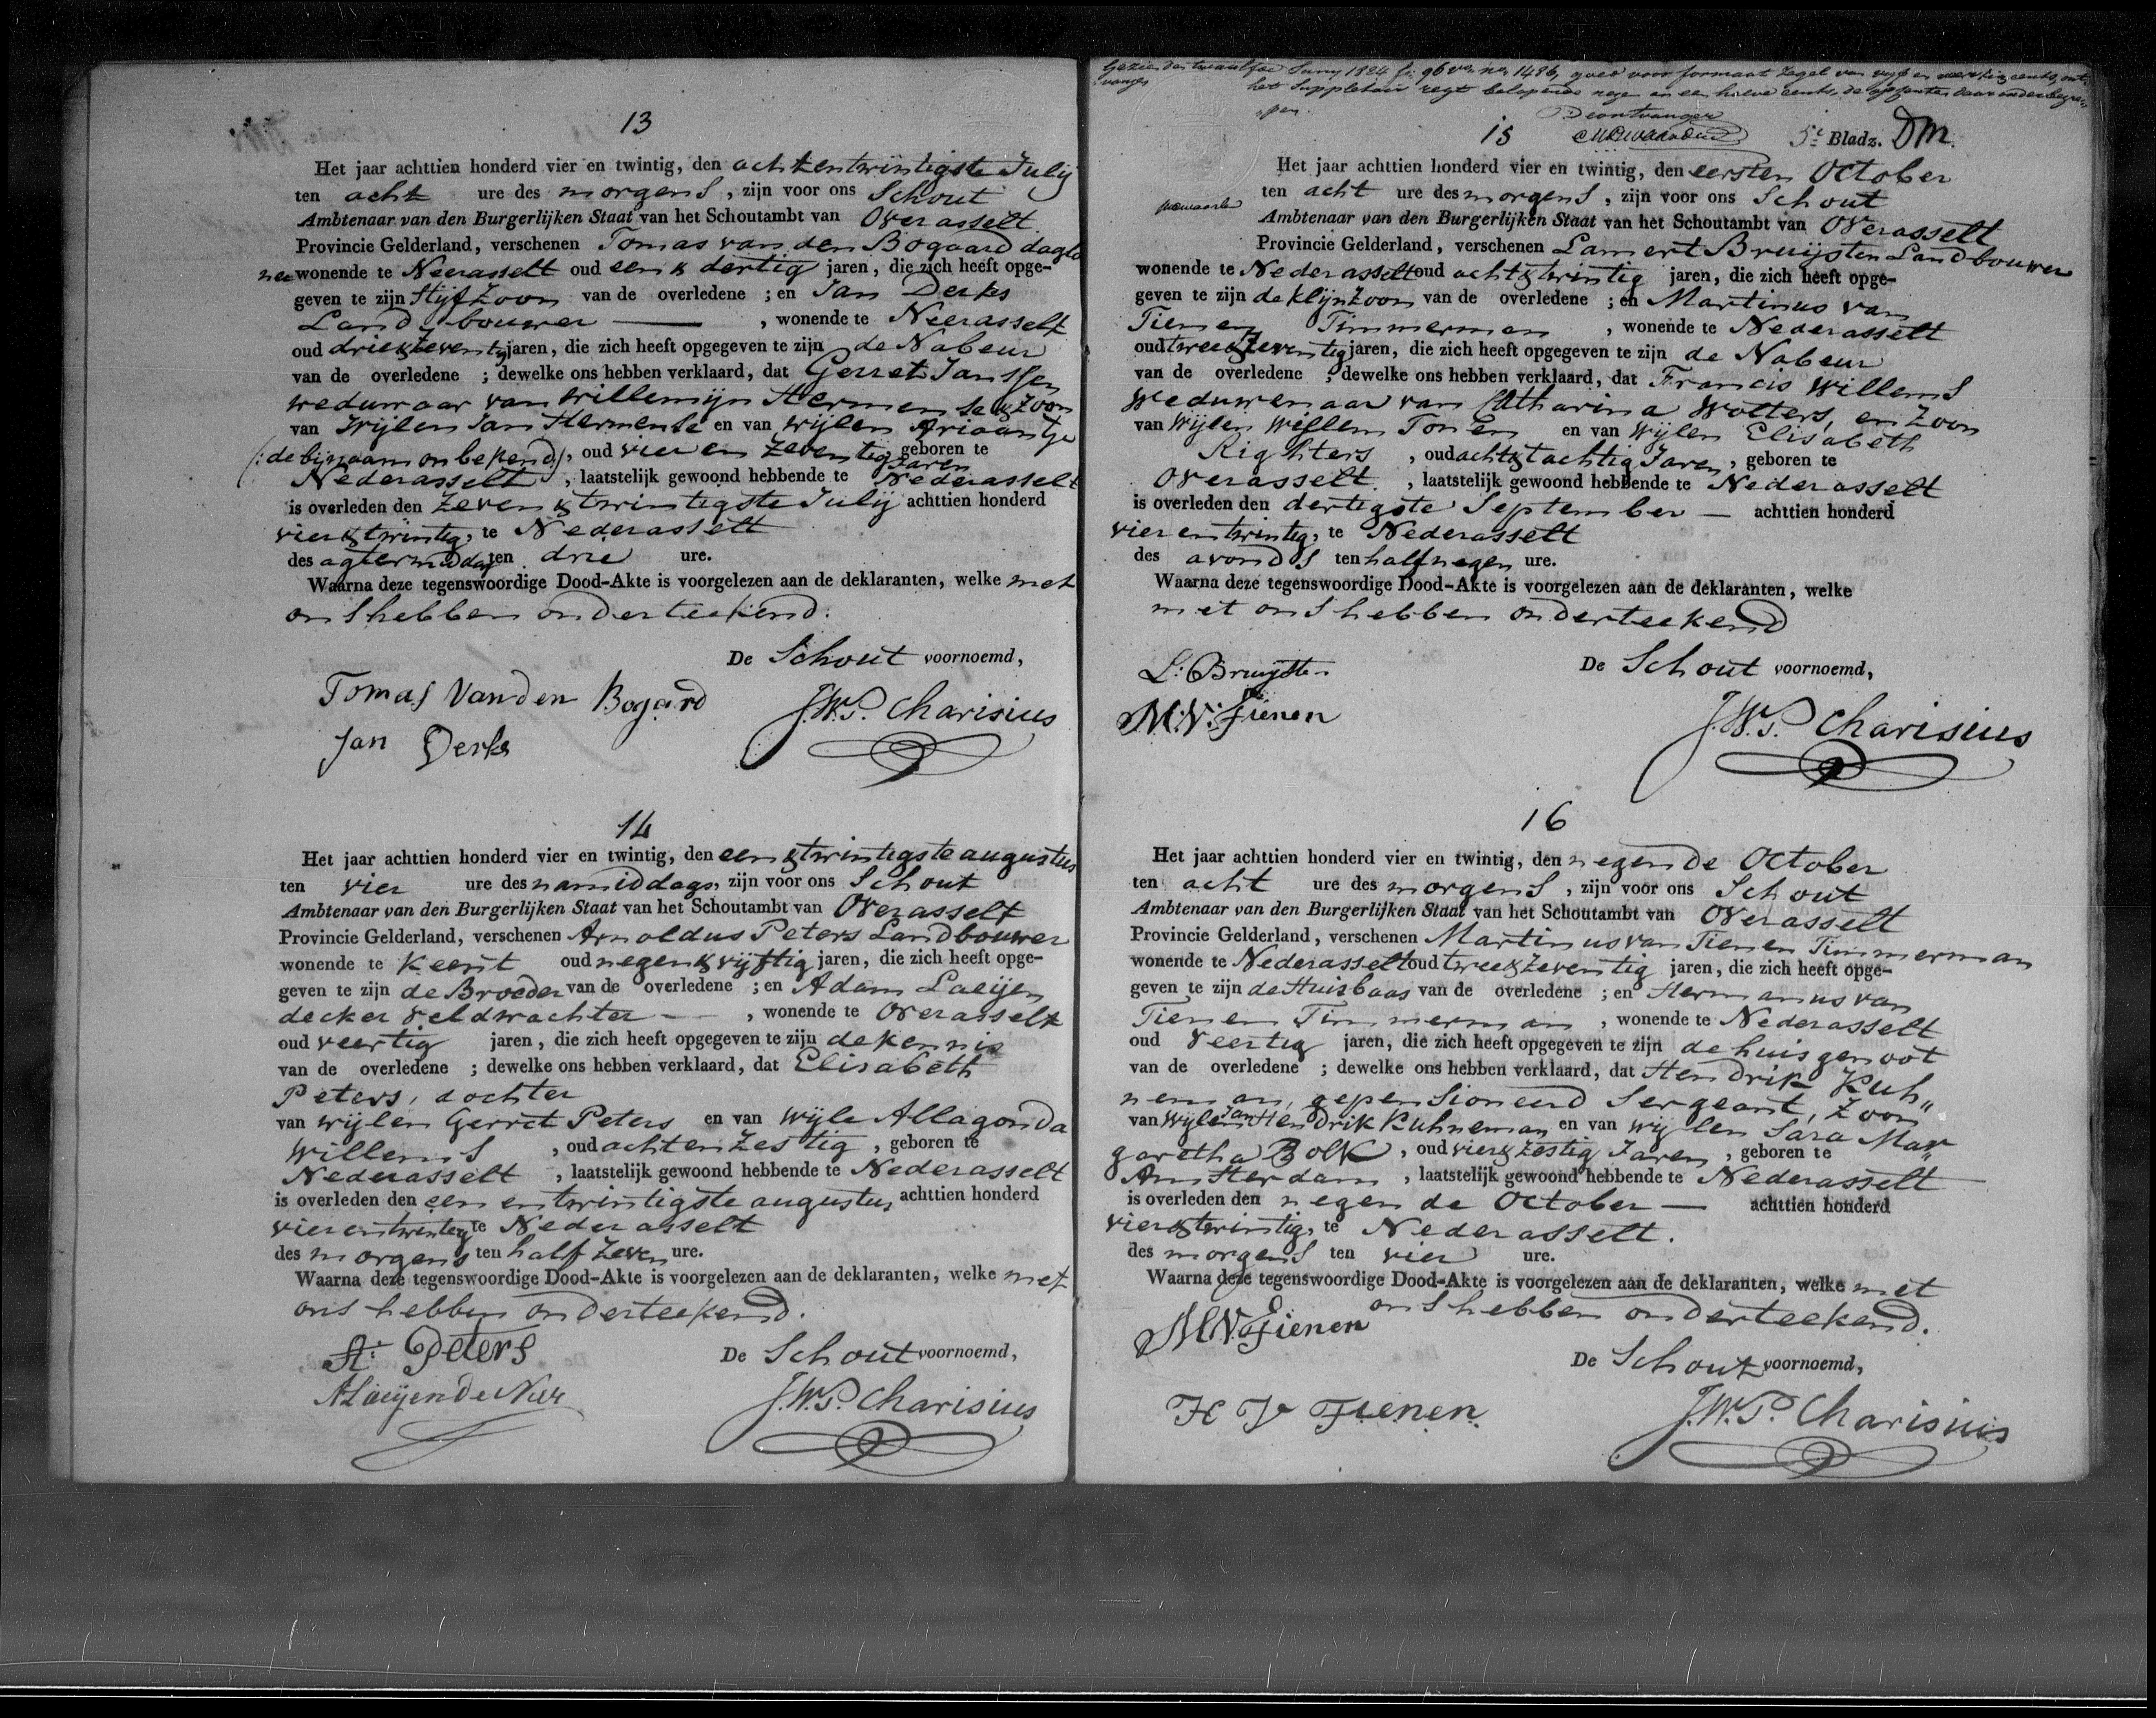 13
Het jaar achttien honderd vier en twintig, den achtentwintigste Julij
ten acht ure des morgens, zijn voor ons Schout
Ambtenaar van den Burgerlijken Staat van het Schoutambt van Overasselt
Provincie Gelderland, verschenen Tomas van den Bogaard daglo
ner wonende te Neerasselt oud een & dertig jaren, die zich heeft opge-
geven te zijn Stijfzoon van de overledene ; en Jan Derks
Landbouwer — , wonende te Neerasselt
oud drie & zeventig jaren, die zich heeft opgegeven te zijn de Nabeur
van de overledene ; dewelke ons hebben verklaard, dat Gerret Janssen
weduwaar van Willemijn Hermense & Zoon
van Wijlen Jan Hermense en van wijlen Ariaantje
(: de bijnaam onbekend), oud vier en zeventig jaren, geboren te
Nederasselt , laatstelijk gewoond hebbende te Nederasselt
is overleden den Zeven & twintigste Julij achttien honderd
vier & twintig, te Nederasselt
des agtermiddag ten drie ure.
Waarna deze tegenswoordige Dood-Akte is voorgelezen aan de deklaranten, welke met
ons hebben onderteekend.
De Schout voornoemd,
Tomas Van den Bogard
J.W.P. Charisius
Jan Derks
14
Het jaar achttien honderd vier en twintig, den een & twintigste augustus
ten vier ure des namiddags, zijn voor ons Schout
Ambtenaar van den Burgerlijken Staat van het Schoutambt van Overasselt
Provincie Gelderland, verschenen Arnoldus Peters Landbouwer
wonende te Keent oud negen & vijftig jaren, die zich heeft opge-
geven te zijn de Broeder van de overledene ; en Adam Laeijen
decker veldwachter — , wonende te Overasselt
oud veertig jaren, die zich heeft opgegeven te zijn de kennis
van de overledene ; dewelke ons hebben verklaard, dat Elisabeth
Peters, dochter
van wijlen Gerret Peters en van Wijle Allagonda
Willems , oud achtenzestig , geboren te
Nederasselt , laatstelijk gewoond hebbende te Nederasselt
is overleden den een en twintigste augustus achttien honderd
vier en twintig te Nederasselt
des morgens ten half zeven ure.
Waarna deze tegenswoordige Dood-Akte is voorgelezen aan de deklaranten, welke met
ons hebben onderteekend.
A: Peters
De Schout voornoemd,
J.W.P. Charisius
Gezien den twaalfde Juny 1824 fo: 96 vo no 1486, goed voor formaat Zegel van vyf en veertig cents, ont-
vangen het Suppletoir regt belopende negen en een halve cents, de opcenten daar onder begre-
pen.
De ontvanger
15 5e Bladz. DM.
Het jaar achttien honderd vier en twintig, den eersten October
ten acht ure des morgens, zijn voor ons Schout
Ambtenaar van den Burgerlijken Staat van het Schoutambt van Overasselt
Provincie Gelderland, verschenen Lamert Bruijsten Landbouwer
wonende te Nederasselt oud acht & twintig jaren, die zich heeft opge-
geven te zijn de klijnzoon van de overledene ; en Martinus van
Tienen Timmerman , wonende te Nederasselt
oud twee & zeventig jaren, die zich heeft opgegeven te zijn de Nabeur
van de overledene ; dewelke ons hebben verklaard, dat Francis Willems
Weduwenaar van Catharina Wolters, en Zoon
van Wijlen Willem Tonen en van Wijlen Elisabeth
Righters , oud acht & tachtig Jaren , geboren te
Overasselt. , laatstelijk gewoond hebbende te Nederasselt
is overleden den dertigste September — achttien honderd
vier en twintig, te Nederasselt
des avonds ten half negen ure.
Waarna deze tegenswoordige Dood-Akte is voorgelezen aan de deklaranten, welke
met ons hebben onderteekend
De Schout voornoemd,
L: Bruijste
M: V: Tienen
J.W.P. Charisius
16
Het jaar achttien honderd vier en twintig, den negende October
ten acht ure des morgens, zijn voor ons Schout
Ambtenaar van den Burgerlijken Staat van het Schoutambt van Overasselt
Provincie Gelderland, verschenen Martinus van Tienen Timmerman
wonende te Nederasselt oud twee & zeventig jaren, die zich heeft opge-
geven te zijn de Huisbaas van de overledene ; en Hermanus van
Tienen Timmerman , wonende te Nederasselt
oud veertig jaren, die zich heeft opgegeven te zijn de huisgenoot
van de overledene ; dewelke ons hebben verklaard, dat Hendrik Kuh„
neman, gepensioneerd Sergeant, Zoon
van Wijlen Jan Hendrik Kuhneman en van wijlen Sara Mar„
garetha Bolk , oud vier & zestig Jaren , geboren te
Amsterdam , laatstelijk gewoond hebbende te Nederasselt
is overleden den negende October — achttien honderd
vier & twintig, te Nederasselt.
des morgens ten vier ure.
Waarna deze tegenswoordige Dood-Akte is voorgelezen aan de deklaranten, welke met
ons hebben onderteekend.
M V Tienen
De Schout voornoemd,
H V Tienen.
J.W.P. Charisius